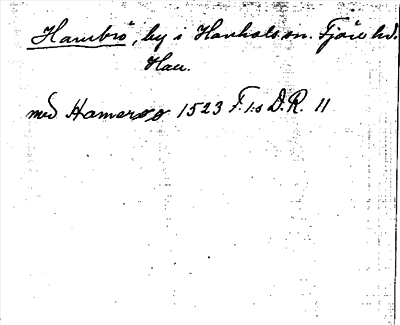 Hambrö, by i Hanhals sn. Fjäre hd.
Hall.
med Hamersøø 1523 F. I:s D.R. 11